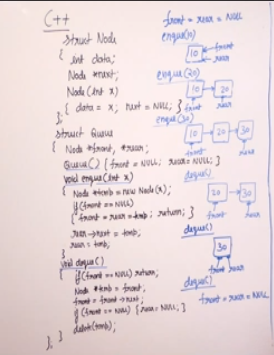 C++
struct Node
{
int data;
Node *next;
Node (int x)
{ data = x; next = NULL; }
};
struct Queue
{
Node *front, *rear;
Queue() { front = NULL; rear = NULL; }
void enque(int x)
{
Node *temp = new Node(x);
if (front == NULL)
{ front = rear = temp; return; }
rear->next = temp;
rear = temp;
}
void deque()
{
if (front == NULL) return;
Node *temp = front;
front = front->next;
if (front == NULL) { rear = NULL; }
delete(temp);
}
};
front = rear = NULL
enque(10)
10
front
rear
enque(20)
10 20
front rear
enque(30)
10 20 30
front rear
deque()
20 30
front rear
deque()
30
front rear
deque()
front = rear = NULL